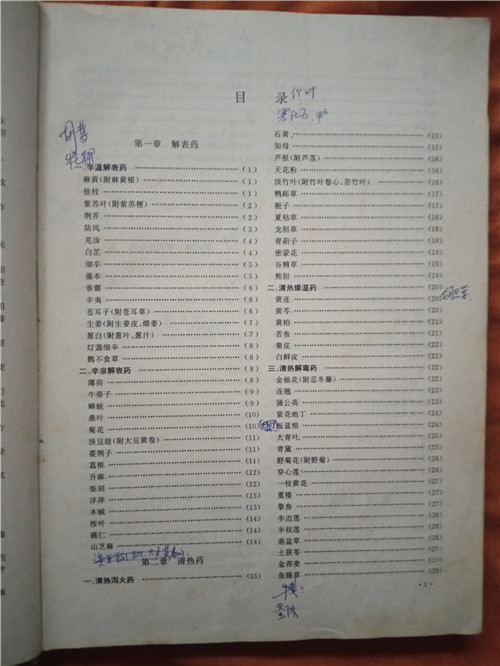 目 录
竹叶
第一章 解表药
一、辛温解表药 (1)
麻黄(附麻黄根) (1)
桂枝 (1)
紫苏叶(附紫苏梗) (2)
荆芥 (2)
防风 (3)
羌活 (4)
白芷 (4)
细辛 (5)
藁本 (5)
香薷 (6)
辛夷 (6)
苍耳子(附苍耳草) (6)
生姜(附生姜皮、煨姜) (7)
葱白(附葱叶、葱汁) (7)
灯盏细辛 (8)
鹅不食草 (8)
二、辛凉解表药 (8)
薄荷 (8)
牛蒡子 (9)
蝉蜕 (9)
桑叶 (10)
菊花 (10)
淡豆豉(附大豆黄卷) (11)
蔓荆子 (11)
葛根 (11)
升麻 (12)
柴胡 (12)
浮萍 (13)
木贼 (13)
桉叶 (14)
蕤仁 (14)
山芝麻 (14)
第二章 清热药
一、清热泻火药 (15)
石膏 (15)
知母 (15)
芦根(附芦茎) (15)
天花粉 (16)
淡竹叶(附竹叶卷心、苦竹叶) (16)
鸭跖草 (17)
栀子 (17)
夏枯草 (18)
龙胆草 (18)
青葙子 (18)
密蒙花 (19)
谷精草 (19)
熊胆 (19)
二、清热燥湿药 (20)
黄连 (20)
黄芩 (20)
黄柏 (21)
苦参 (21)
秦皮 (22)
白鲜皮 (22)
三、清热解毒药 (22)
金银花(附忍冬藤) (22)
连翘 (23)
蒲公英 (23)
紫花地丁 (24)
板蓝根 (24)
大青叶 (25)
青黛 (25)
野菊花(附野菊) (26)
穿心莲 (26)
一枝黄花 (26)
重楼 (27)
拳参 (27)
半边莲 (27)
半枝莲 (28)
垂盆草 (28)
土茯苓 (28)
金荞麦 (29)
鱼腥草 (29)